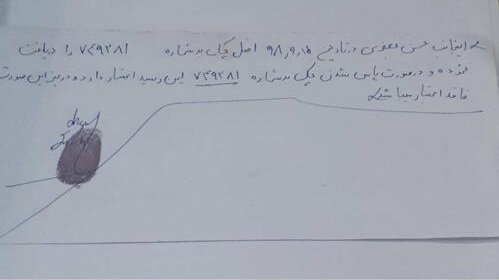 اینجانب حسن یعقوبی در تاریخ ۹۸,۹,۱۵ اصل چک به شماره ۷۳۹۲۸۱ را دریافت
نموده و در صورت پاس شدن چک به شماره ۷۳۹۲۸۱ این رسید اعتبار دارد و در غیر این صورت
فاقد اعتبار میباشد